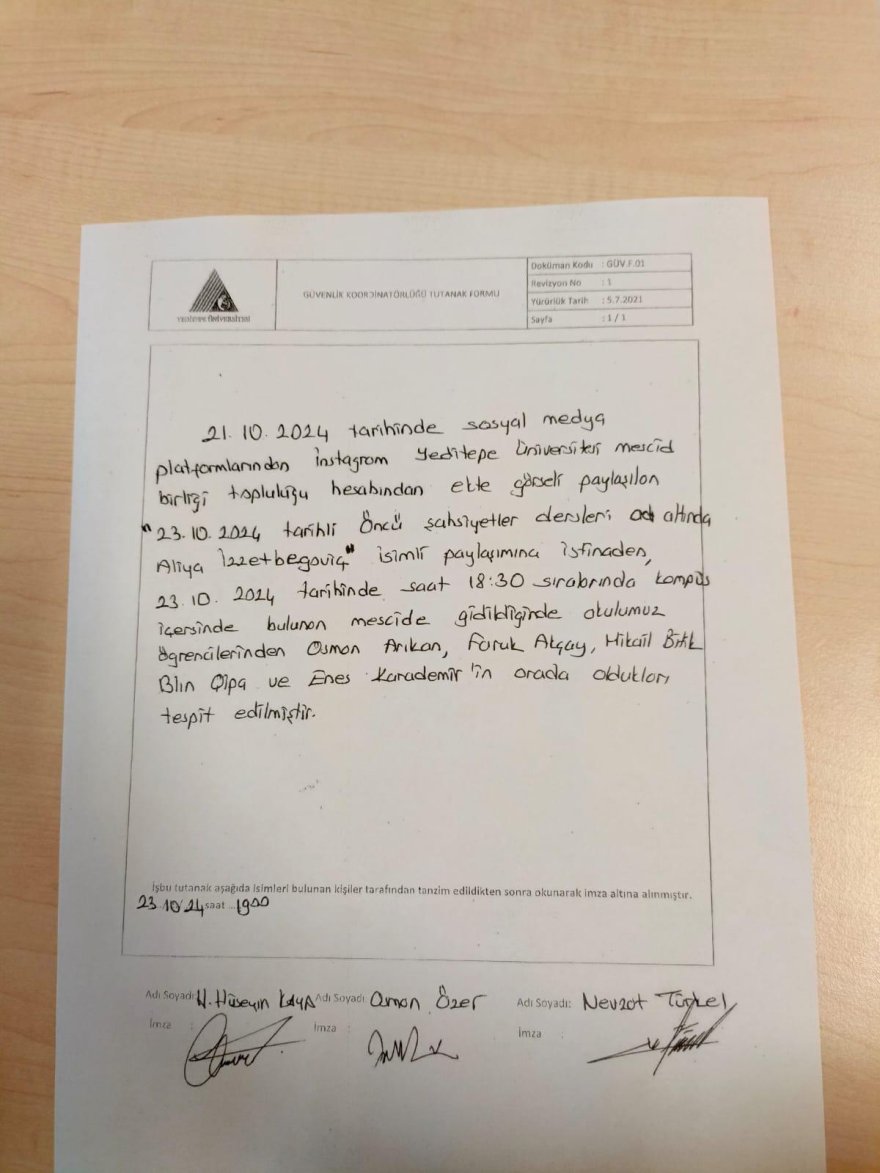 YEDİTEPE ÜNİVERSİTESİ
GÜVENLİK KOORDİNATÖRLÜĞÜ TUTANAK FORMU
Doküman Kodu : GÜV.F.01
Revizyon No : 1
Yürürlük Tarih : 5.7.2021
Sayfa : 1 / 1
21.10.2024 tarihinde sosyal medya
platformlarından İnstagram Yeditepe Üniversitesi mescid
birliği topluluğu hesabından ekte görseli paylaşılan
"23.10.2024 tarihli Öncü şahsiyetler dersleri adı altında
Aliya İzzetbegoviç" isimli paylaşımına istinaden,
23.10.2024 tarihinde saat 18:30 sıralarında kampüs
içersinde bulunan mescide gidildiğinde okulumuz
öğrencilerinden Osman Arıkan, Faruk Akçay, Mikail
Blin Qipa ve Enes Karademir'in orada oldukları
tespit edilmiştir.
İşbu tutanak aşağıda isimleri bulunan kişiler tarafından tanzim edildikten sonra okunarak imza altına alınmıştır.
23.10.24 saat ..1900
Adı Soyadı: H. Hüseyin KAYA Adı Soyadı: Osman Özer Adı Soyadı: Nevzat Türkel
İmza : İmza : İmza :